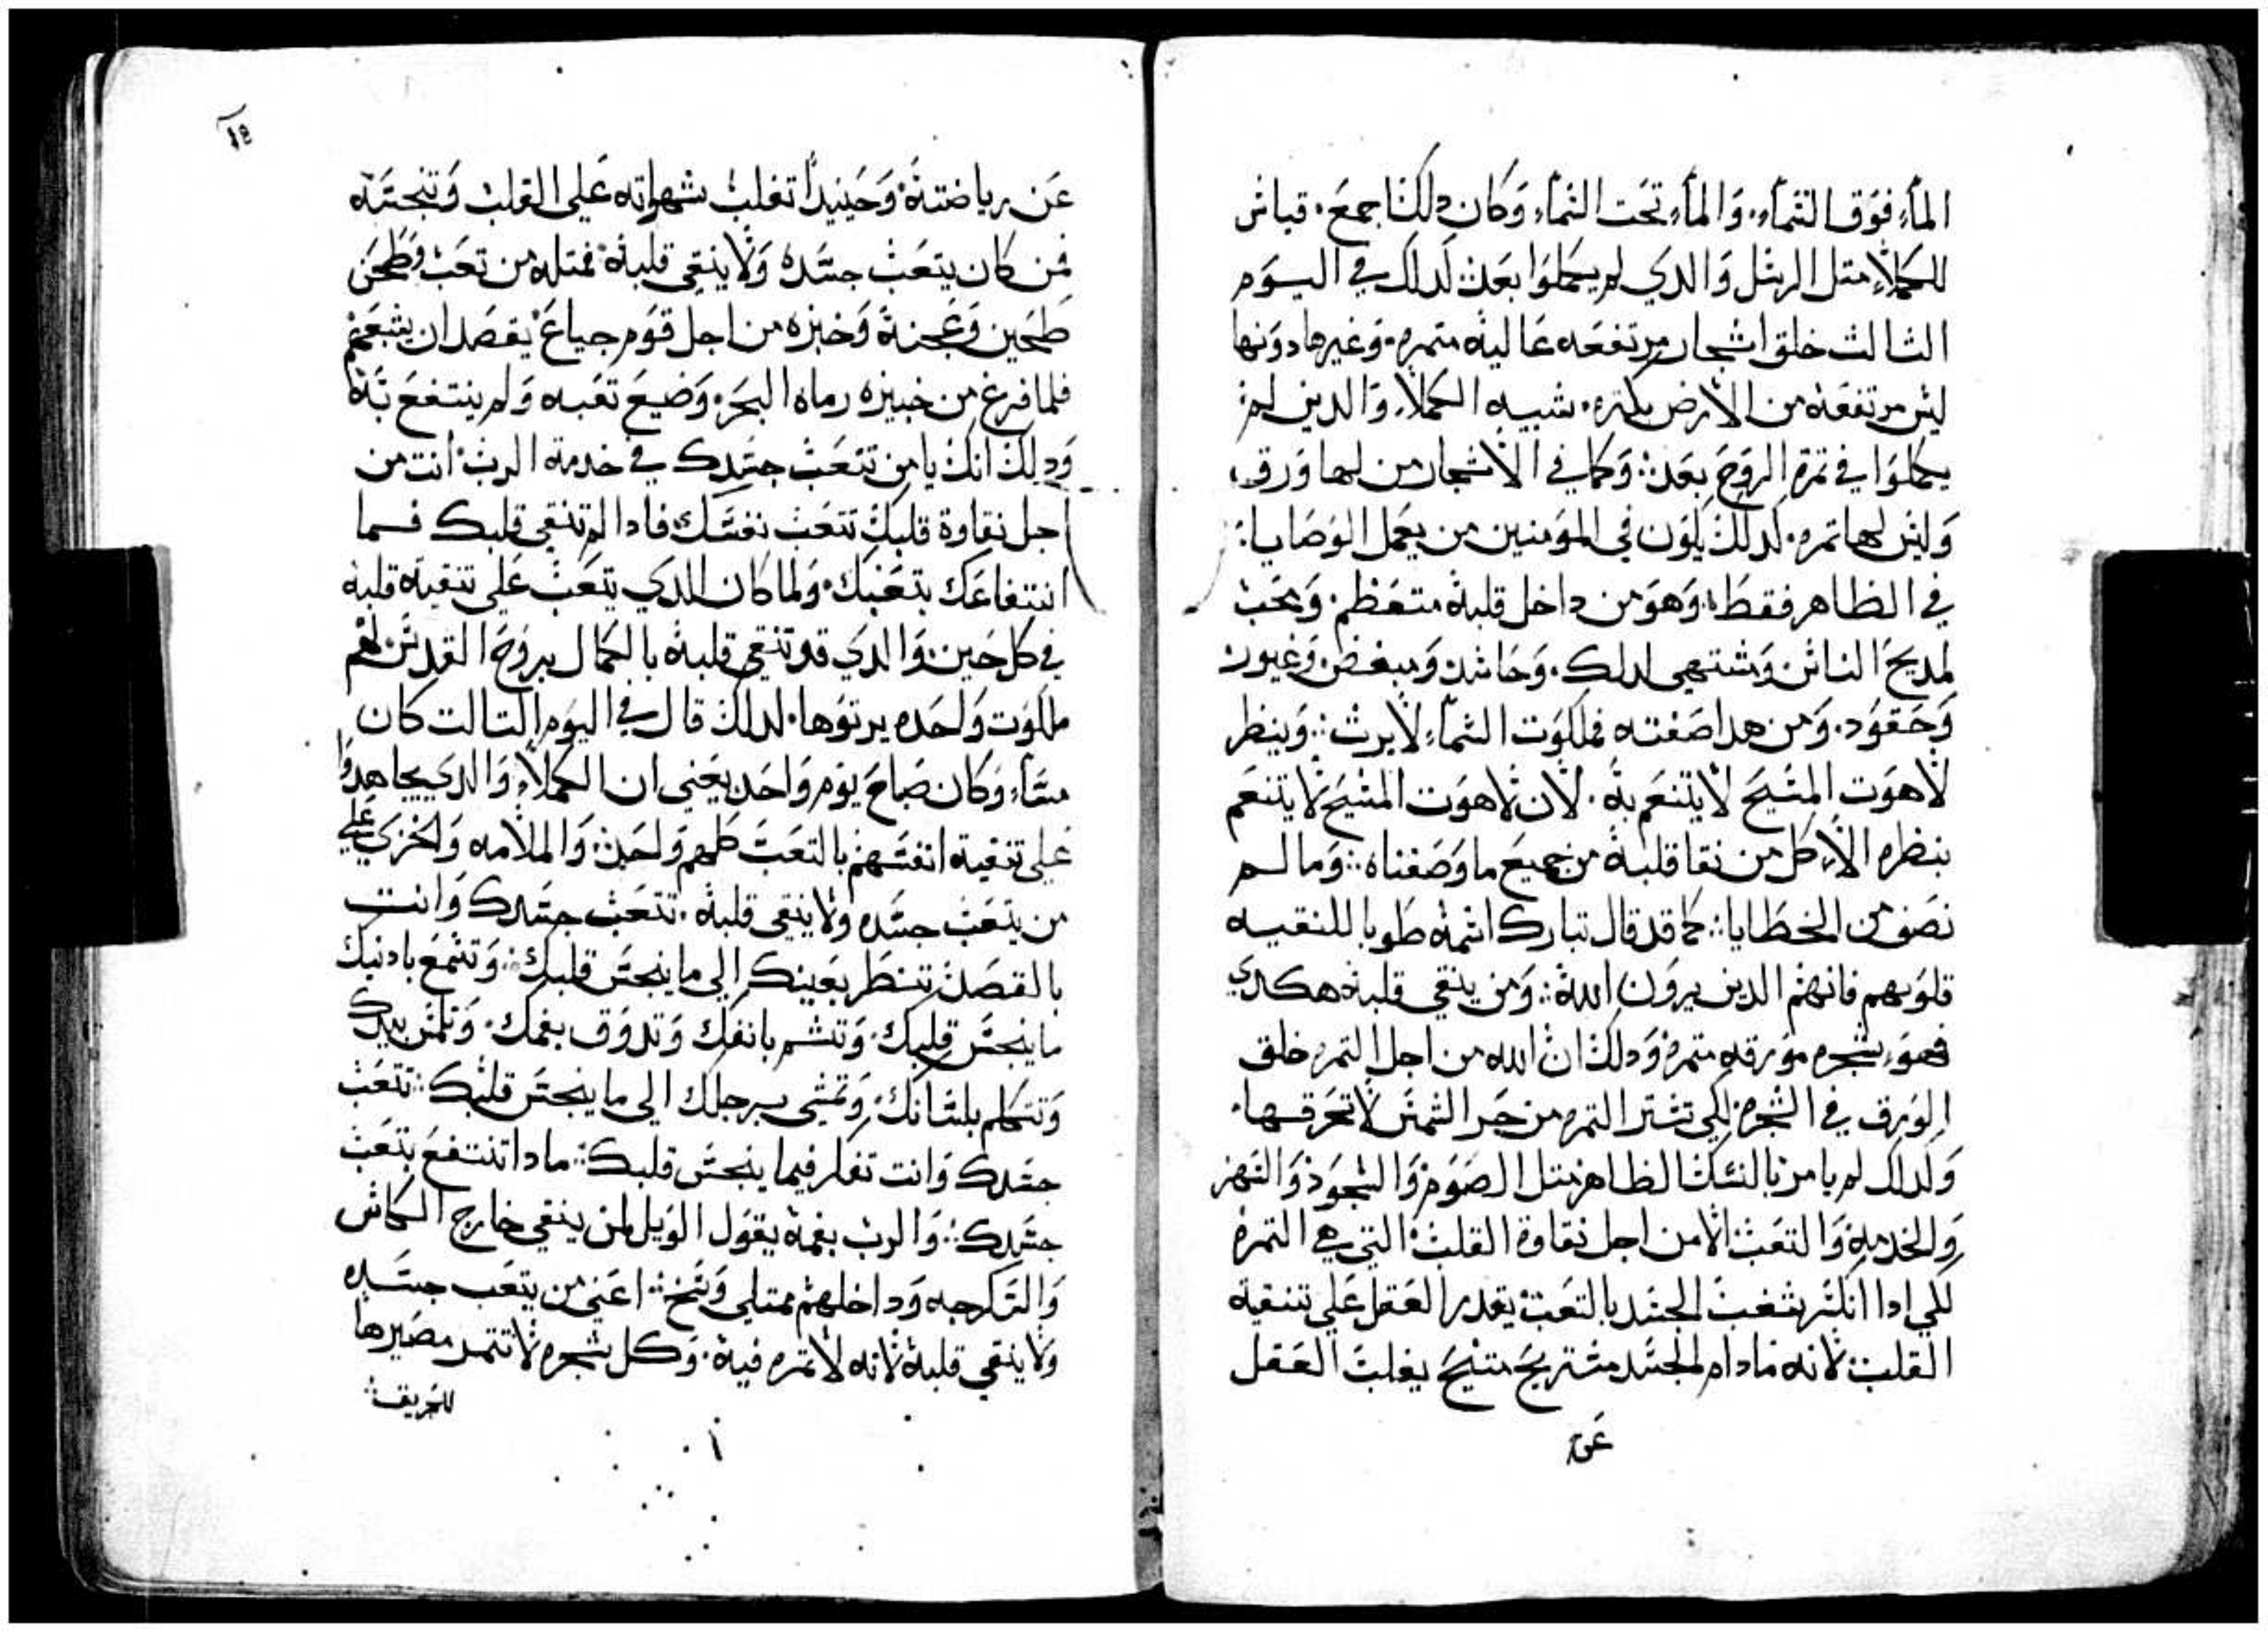 المآء فوق السمآء. والمآء تحت السمآء وكان دلك اجمع. قياس
للكملاء متل الرسل والدي لم يكملوا بعد لدلك في اليوم
الثالث خلق اشجار مرتفعه عاليه متمره. وغيرها دونها
ليس مرتفعه من الارض بكتره. شبيه الكملاء والدين لم
يكملوا في تمرة الروح بعد: وكما في الاشجار من لها ورق
وليس لها تمره. لدلك يكون في المومنين من يعمل الوصايا:
في الظاهر فقط. وهو من داخل قلبه متعظم. ومحب
لمديح الناس ومشتهي لدلك. وحاسد ومبغض وغيور
وحقود. ومن هدا صفته فملكوت السمآء لا يرث: وينظر
لاهوت المسيح لا يتنعم به. لان لاهوت المسيح لا يتنعم
بنظره الا كل من نقا قلبه من جميع ما وصفناه: وما لم
نصف من الخطايا: كما قد قال تبارك اسمه طوبا للنقيه
قلوبهم فانهم الدين يرون الله: ومن ينقي قلبه هكدي
فهو شجره مورقه متمره ودلك ان الله من اجل التمره خلق
الورق في الشجره لكي تستر التمره من حر الشمس لا تحرقها.
ولدلك لم يامر بالنسك الظاهر متل الصوم والسجود والسهر
والخدمه والتعب الا من اجل نقاوة القلب التي هي التمرة
لكي ادا انكسر شغب الجسد بالتعب يقدر العقل على تنقية
القلب لانه مادام الجسد مستريح متنيح يغلب العقل
عن
١٤
عن رياضته وحينيدا تغلب شهواته على القلب وتنجسه
فمن كان يتعب جسده ولا ينقي قلبه فمتله من تعب وطحن
طحين وعجنه وخبزه من اجل قوم جياع يقصد ان يشبعهم
فلما فرغ من خبيزه رماه البحر. وضيع تعبه ولم ينتفع به
ودلك انك يا من تتعب جسدك في خدمة الرب انت من
اجل نقاوة قلبك تتعب نفسك فادا لم تنقي قلبك فما
انتفاعك بتعبك. ولما كان الدي يتعب على تنقية قلبه
في كل حين والدي قد تنقي قلبه بالكمال بروح القدس لهم
ملكوت واحده يرتوها. لدلك قال في اليوم التالت كان
مسآء وكان صباح يوم واحد يعني ان الكملاء والدي يجاهدوا
على تنقية انفسهم بالتعب كلهم واحد: والملامه والخزي على
من يتعب جسده ولا ينقي قلبه. تتعب جسدك وانت
بالقصد تنظر بعينك الى ما ينجس قلبك: وتسمع بادنيك
ما ينجس قلبك. وتشم بانفك وتدوق بفمك. وتلمس بيدك
وتتكلم بلسانك. وتمشي برجلك الى ما ينجس قلبك: تتعب
جسدك وانت تفكر فيما ينجس قلبك: مادا تنتفع بتعب
جسدك: والرب بفمه يقول الويل لمن ينقي خارج الكاس
والسكرجه وداخلهم ممتلي وسخ: اعني من يتعب جسده
ولا ينقي قلبه لانه لا تمره فيه. وكل شجره لا تتمر مصيرها
للحريق